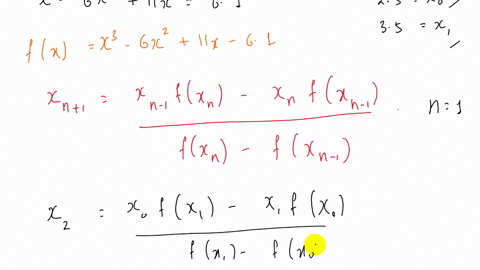 x³ - 6x² + 11x = 6.1
2.5 = x₀
3.5 = x₁
f(x) = x³ - 6x² + 11x - 6.1
xₙ₊₁ = xₙ₋₁ f(xₙ) - xₙ f(xₙ₋₁)
f(xₙ) - f(xₙ₋₁)
n=1
x₂ = x₀ f(x₁) - x₁ f(x₀)
f(x₁) - f(x₀